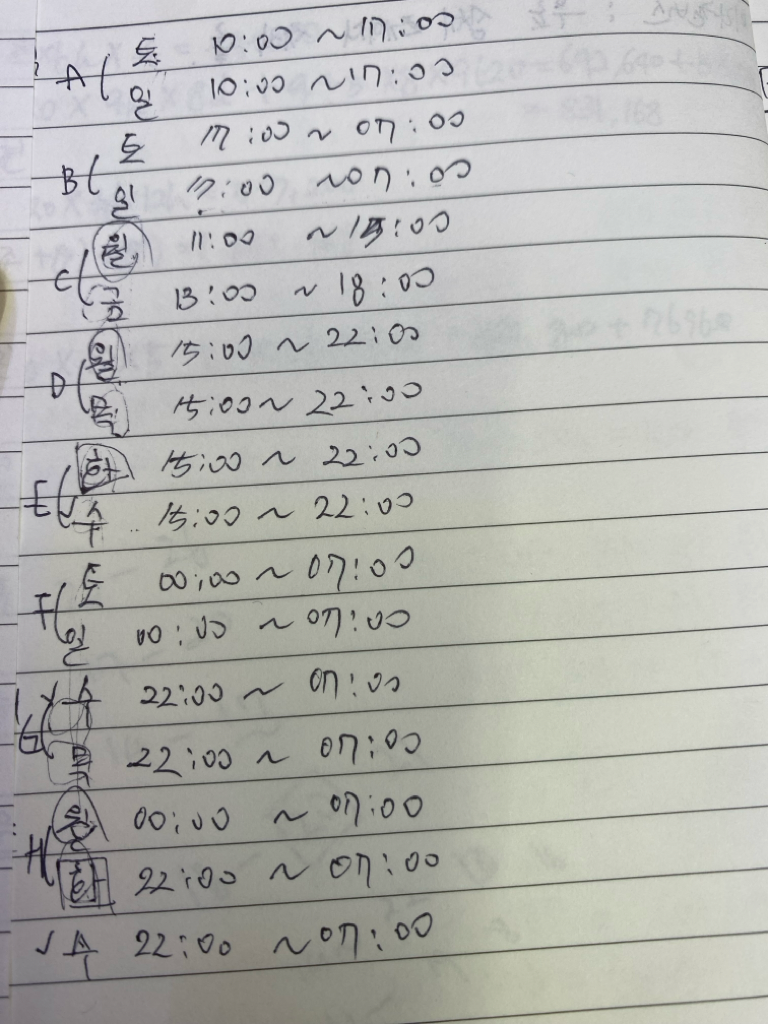 A 토 10:00 ~ 17:00
일 10:00 ~ 17:00
B 토 17:00 ~ 07:00
일 17:00 ~ 07:00
C 월 11:00 ~ 15:00
금 13:00 ~ 18:00
D 월 15:00 ~ 22:00
목 15:00 ~ 22:00
E 화 15:00 ~ 22:00
수 15:00 ~ 22:00
F 토 00:00 ~ 07:00
일 00:00 ~ 07:00
G 수 22:00 ~ 07:00
목 22:00 ~ 07:00
H 월 00:00 ~ 07:00
화 22:00 ~ 07:00
수 22:00 ~ 07:00